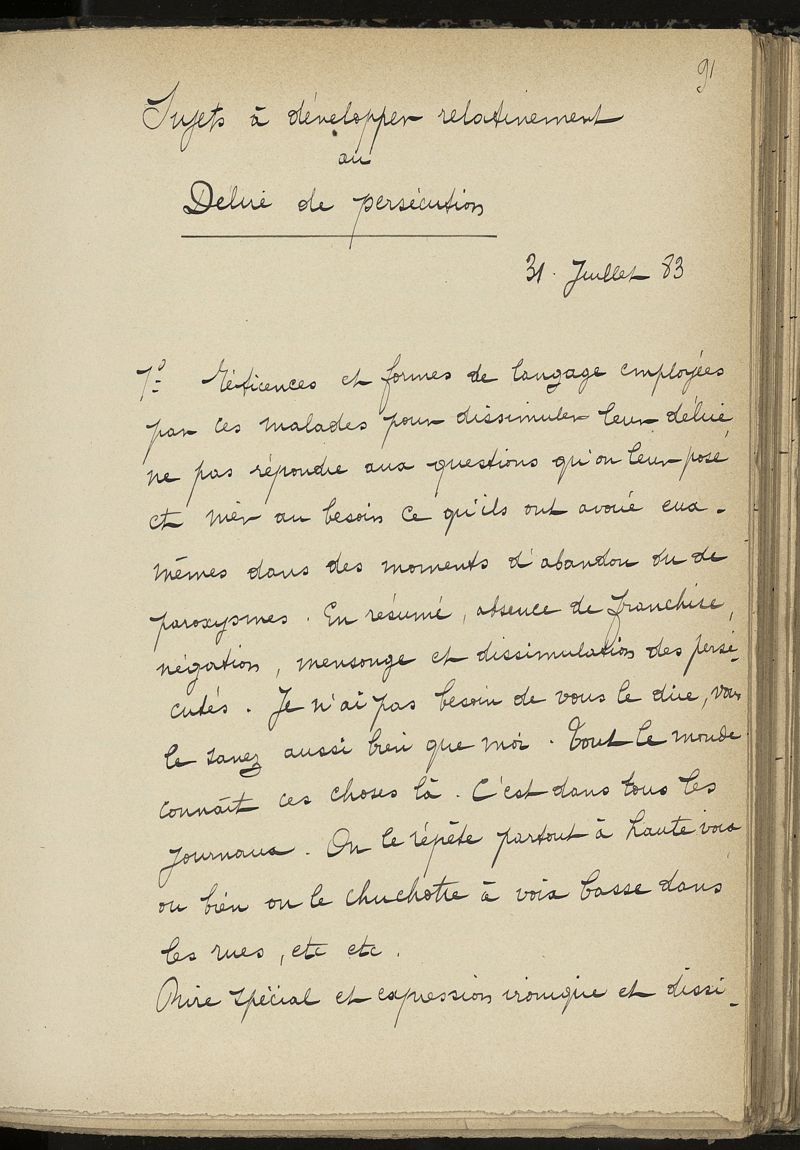 91
Sujets à développer relativement
au
Délire de persécution
31 Juillet 83
1º Réticences et formes de langage employées
par ces malades pour dissimuler leur délire,
ne pas répondre aux questions qu'on leur pose
et nier au besoin ce qu'ils ont avoué eux-
mêmes dans des moments d'abandon ou de
paroxysmes. En résumé, absence de franchise,
négation, mensonge et dissimulation des persé-
cutés. Je n'ai pas besoin de vous le dire, vous
le savez aussi bien que moi. Tout le monde
connaît ces choses là. C'est dans tous les
journaux. On le répète partout à haute voix
ou bien on le chuchotte à voix basse dans
les rues, etc etc.
Rire spécial et expression ironique et dissi-